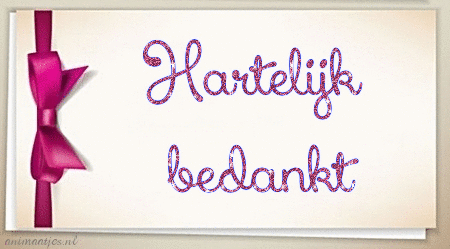 Hartelijk
bedankt
animaatjes.nl